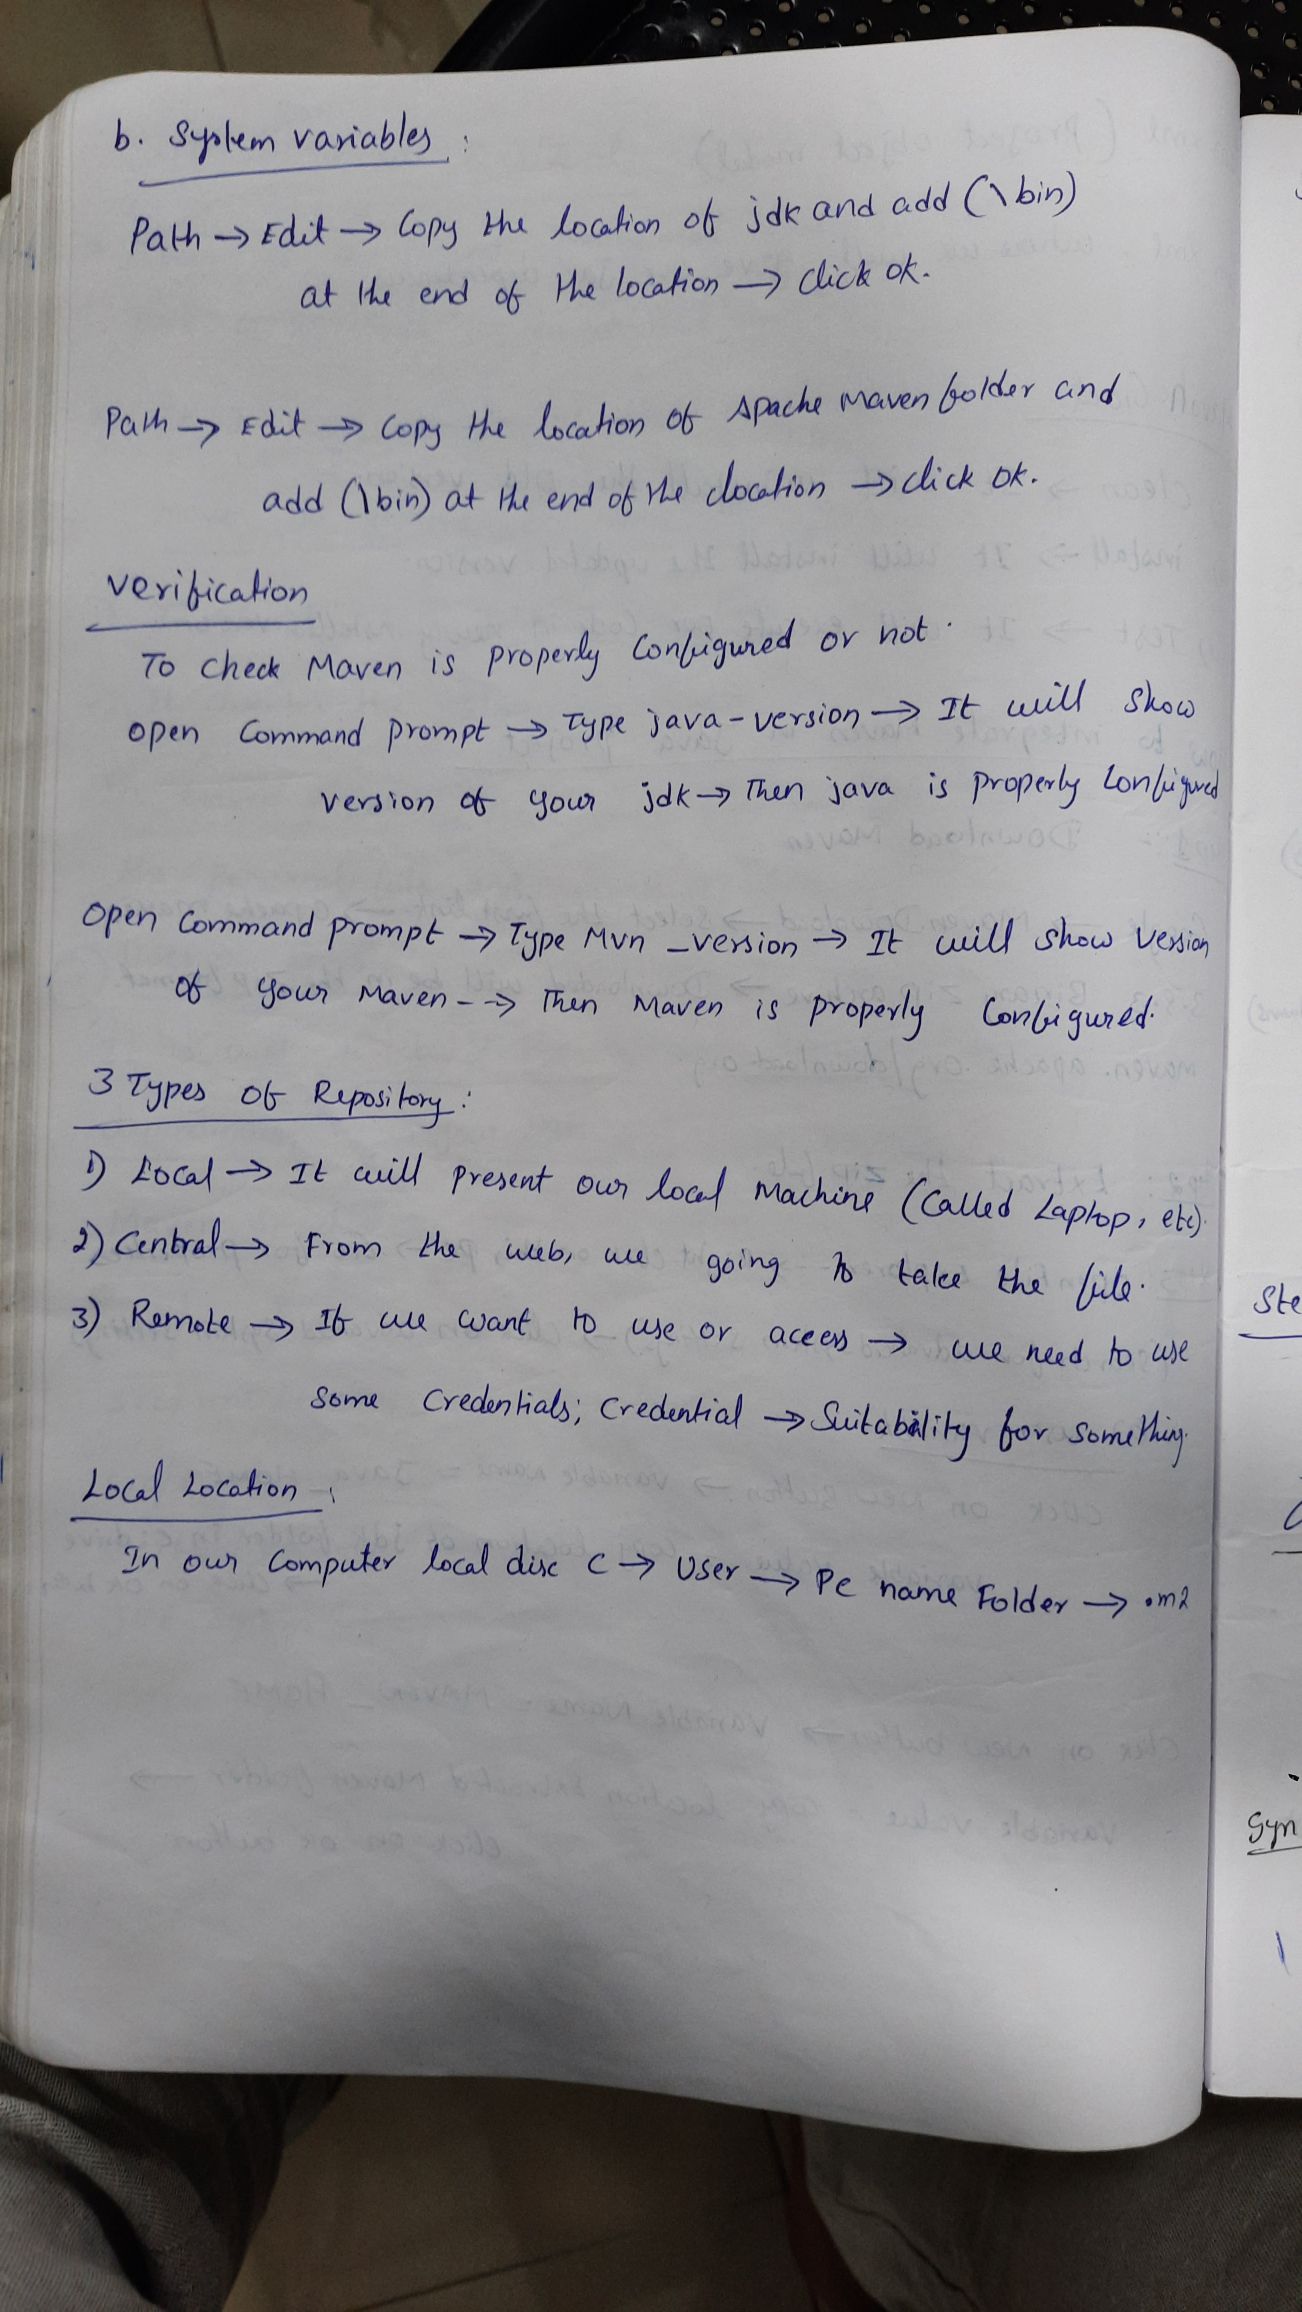 b. System variables :
Path → Edit → Copy the location of jdk and add (\bin)
at the end of the location → click ok.
Path → Edit → Copy the location of Apache Maven folder and
add (\bin) at the end of the location → click ok.
Verification
To check Maven is properly Configured or not.
open Command prompt → Type java-version → It will show
version of your jdk → Then java is properly Configured
Open Command prompt → Type Mvn _version → It will show Version
of your Maven --> Then Maven is properly Configured.
3 Types of Repository :
1) Local → It will present our local Machine (Called Laptop, etc).
2) Central → From the web, we going to take the file.
3) Remote → If we want to use or acces → we need to use
Some Credentials; Credential → Suitability for something.
Local Location :
In our Computer local disc C → User → Pc name Folder → .m2
Ste
Syn